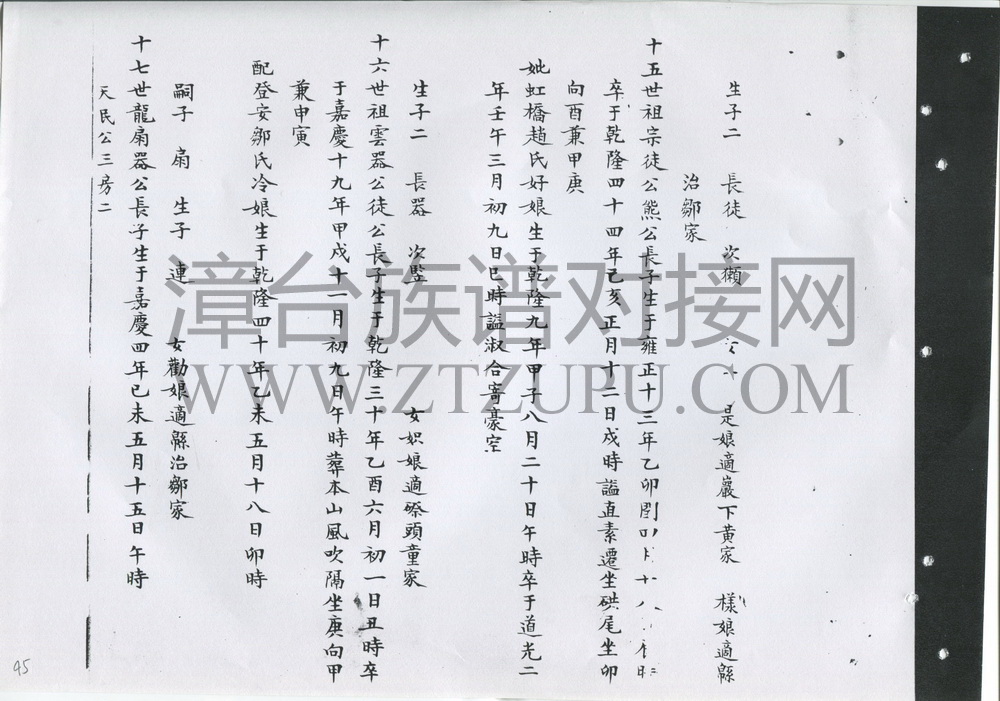 生子二 長徒 次㩜 女 是娘適巖下黃家 樣娘適縣
治鄒家
十五世祖宗徒公熊公長子生于雍正十三年乙卯閏四月十八日
卒于乾隆四十四年己亥正月十二日戌時謚直素遷坐硔尾坐卯
向酉兼甲庚
妣虹橋趙氏好娘生于乾隆九年甲子八月二十日午時卒于道光二
年壬午三月初九日巳時謚淑合寄豪空
生子二 長器 次監 女娘適磜頭童家
十六世祖雲器公徒公長子生于乾隆三十年乙酉六月初一日丑時卒
于嘉慶十九年甲戌十一月初九日午時葬本山風吹隔坐庚向甲
兼申寅
配登安鄒氏冷娘生于乾隆四十年乙未五月十八日卯時
嗣子 扇 生子 連 女勸娘適縣治鄒家
十七世龍扇器公長子生于嘉慶四年己未五月十五日午時
天民公三房二
45
漳台族谱对接网
WWW.ZTZUPU.COM